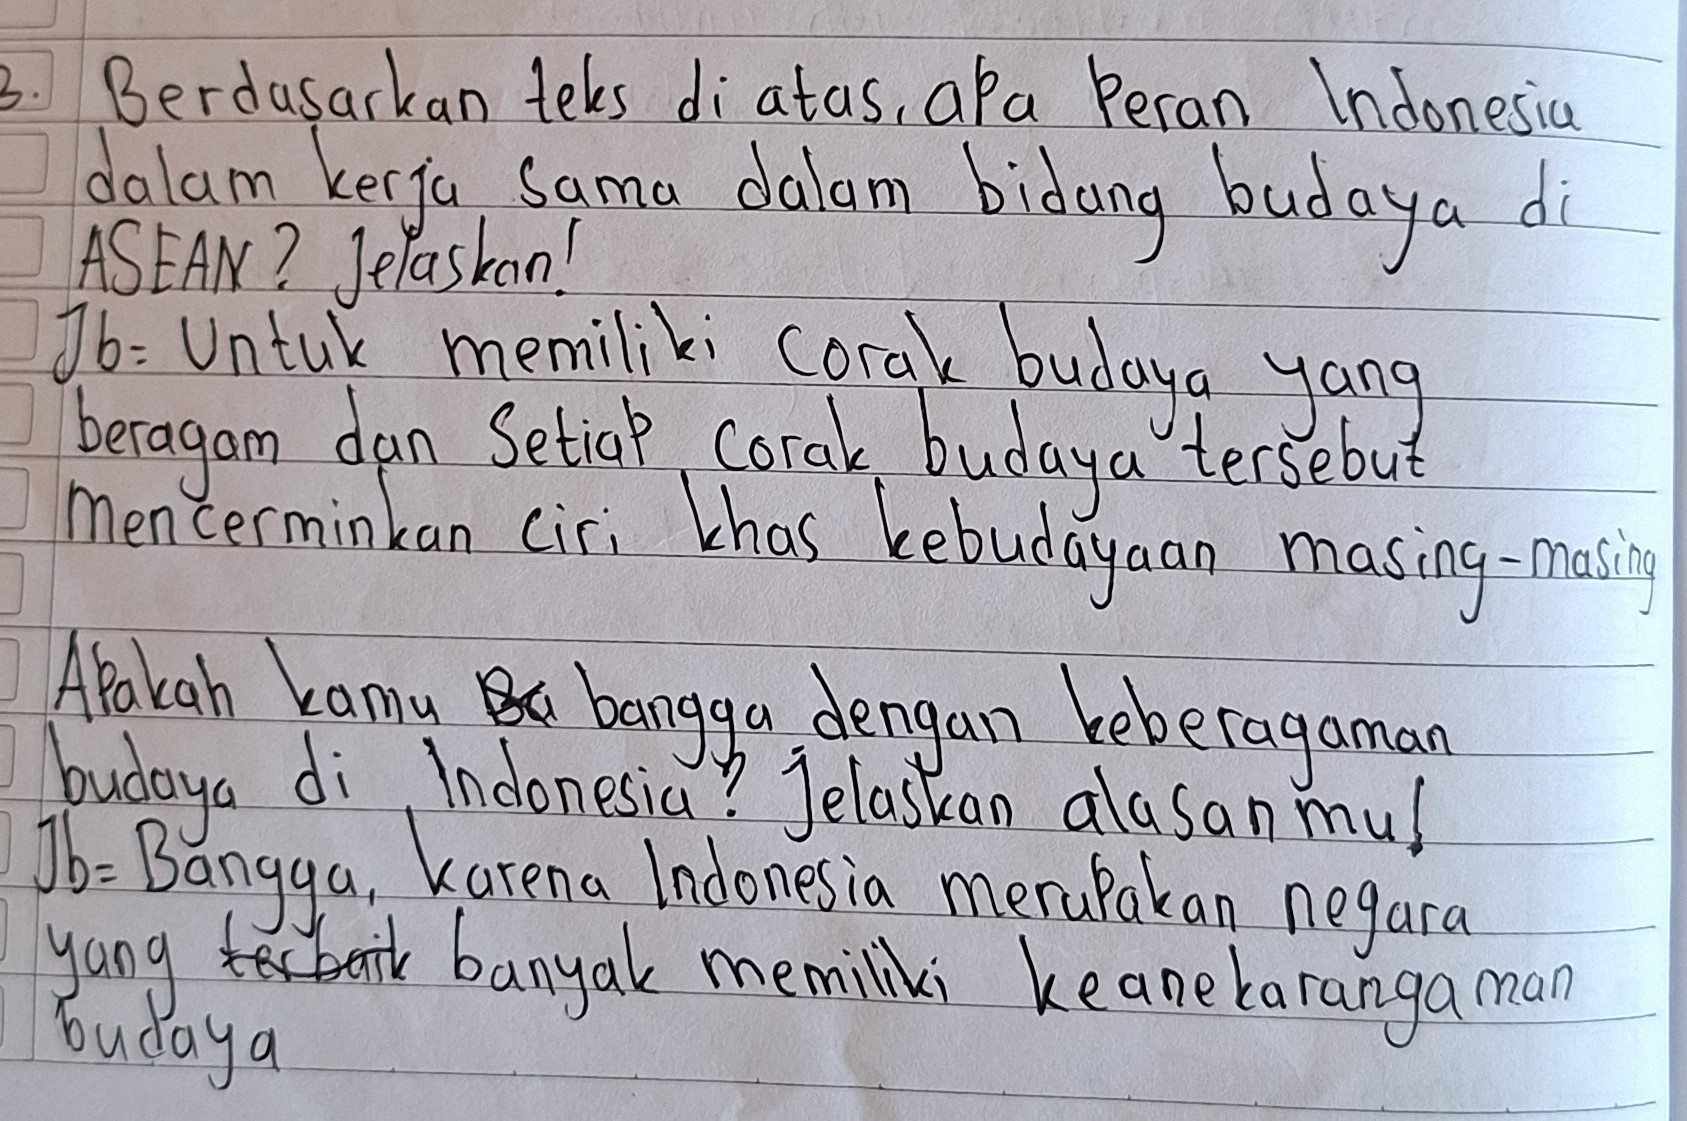 3. Berdasarkan teks di atas, apa Peran Indonesia
dalam kerja sama dalam bidang budaya di
ASEAN? Jelaskan!
Jb= Untuk memiliki corak budaya yang
beragam dan Setiap corak budaya tersebut
mencerminkan ciri khas kebudayaan masing-masing
Apakah kamu Ba bangga dengan keberagaman
budaya di Indonesia? Jelaskan alasanmu!
Jb= Bangga, karena Indonesia merupakan negara
yang terbaik banyak memiliki keanekarangaman
budaya